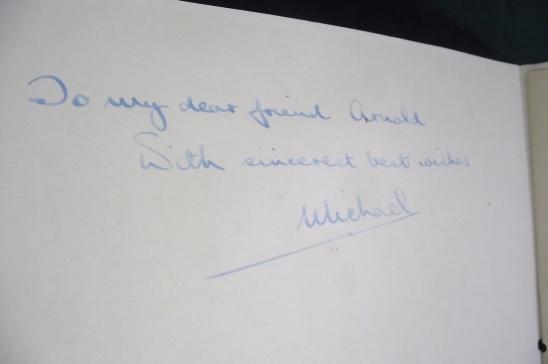 To my dear friend Arnold
With sincerest best wishes
Michael